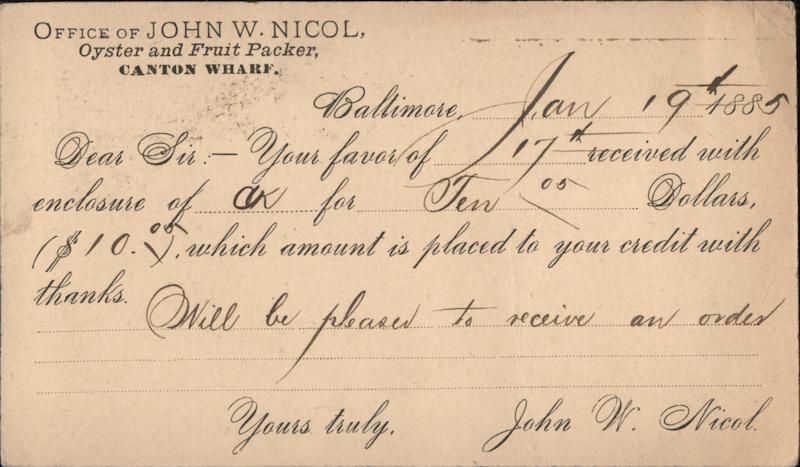 OFFICE OF JOHN W. NICOL,
Oyster and Fruit Packer,
CANTON WHARF.
Baltimore, Jan 19th 1885
Dear Sir:— Your favor of 17th received with
enclosure of Ck for Ten 05 Dollars,
($10.05), which amount is placed to your credit with
thanks.
Will be pleased to receive an order
Yours truly, John W. Nicol.